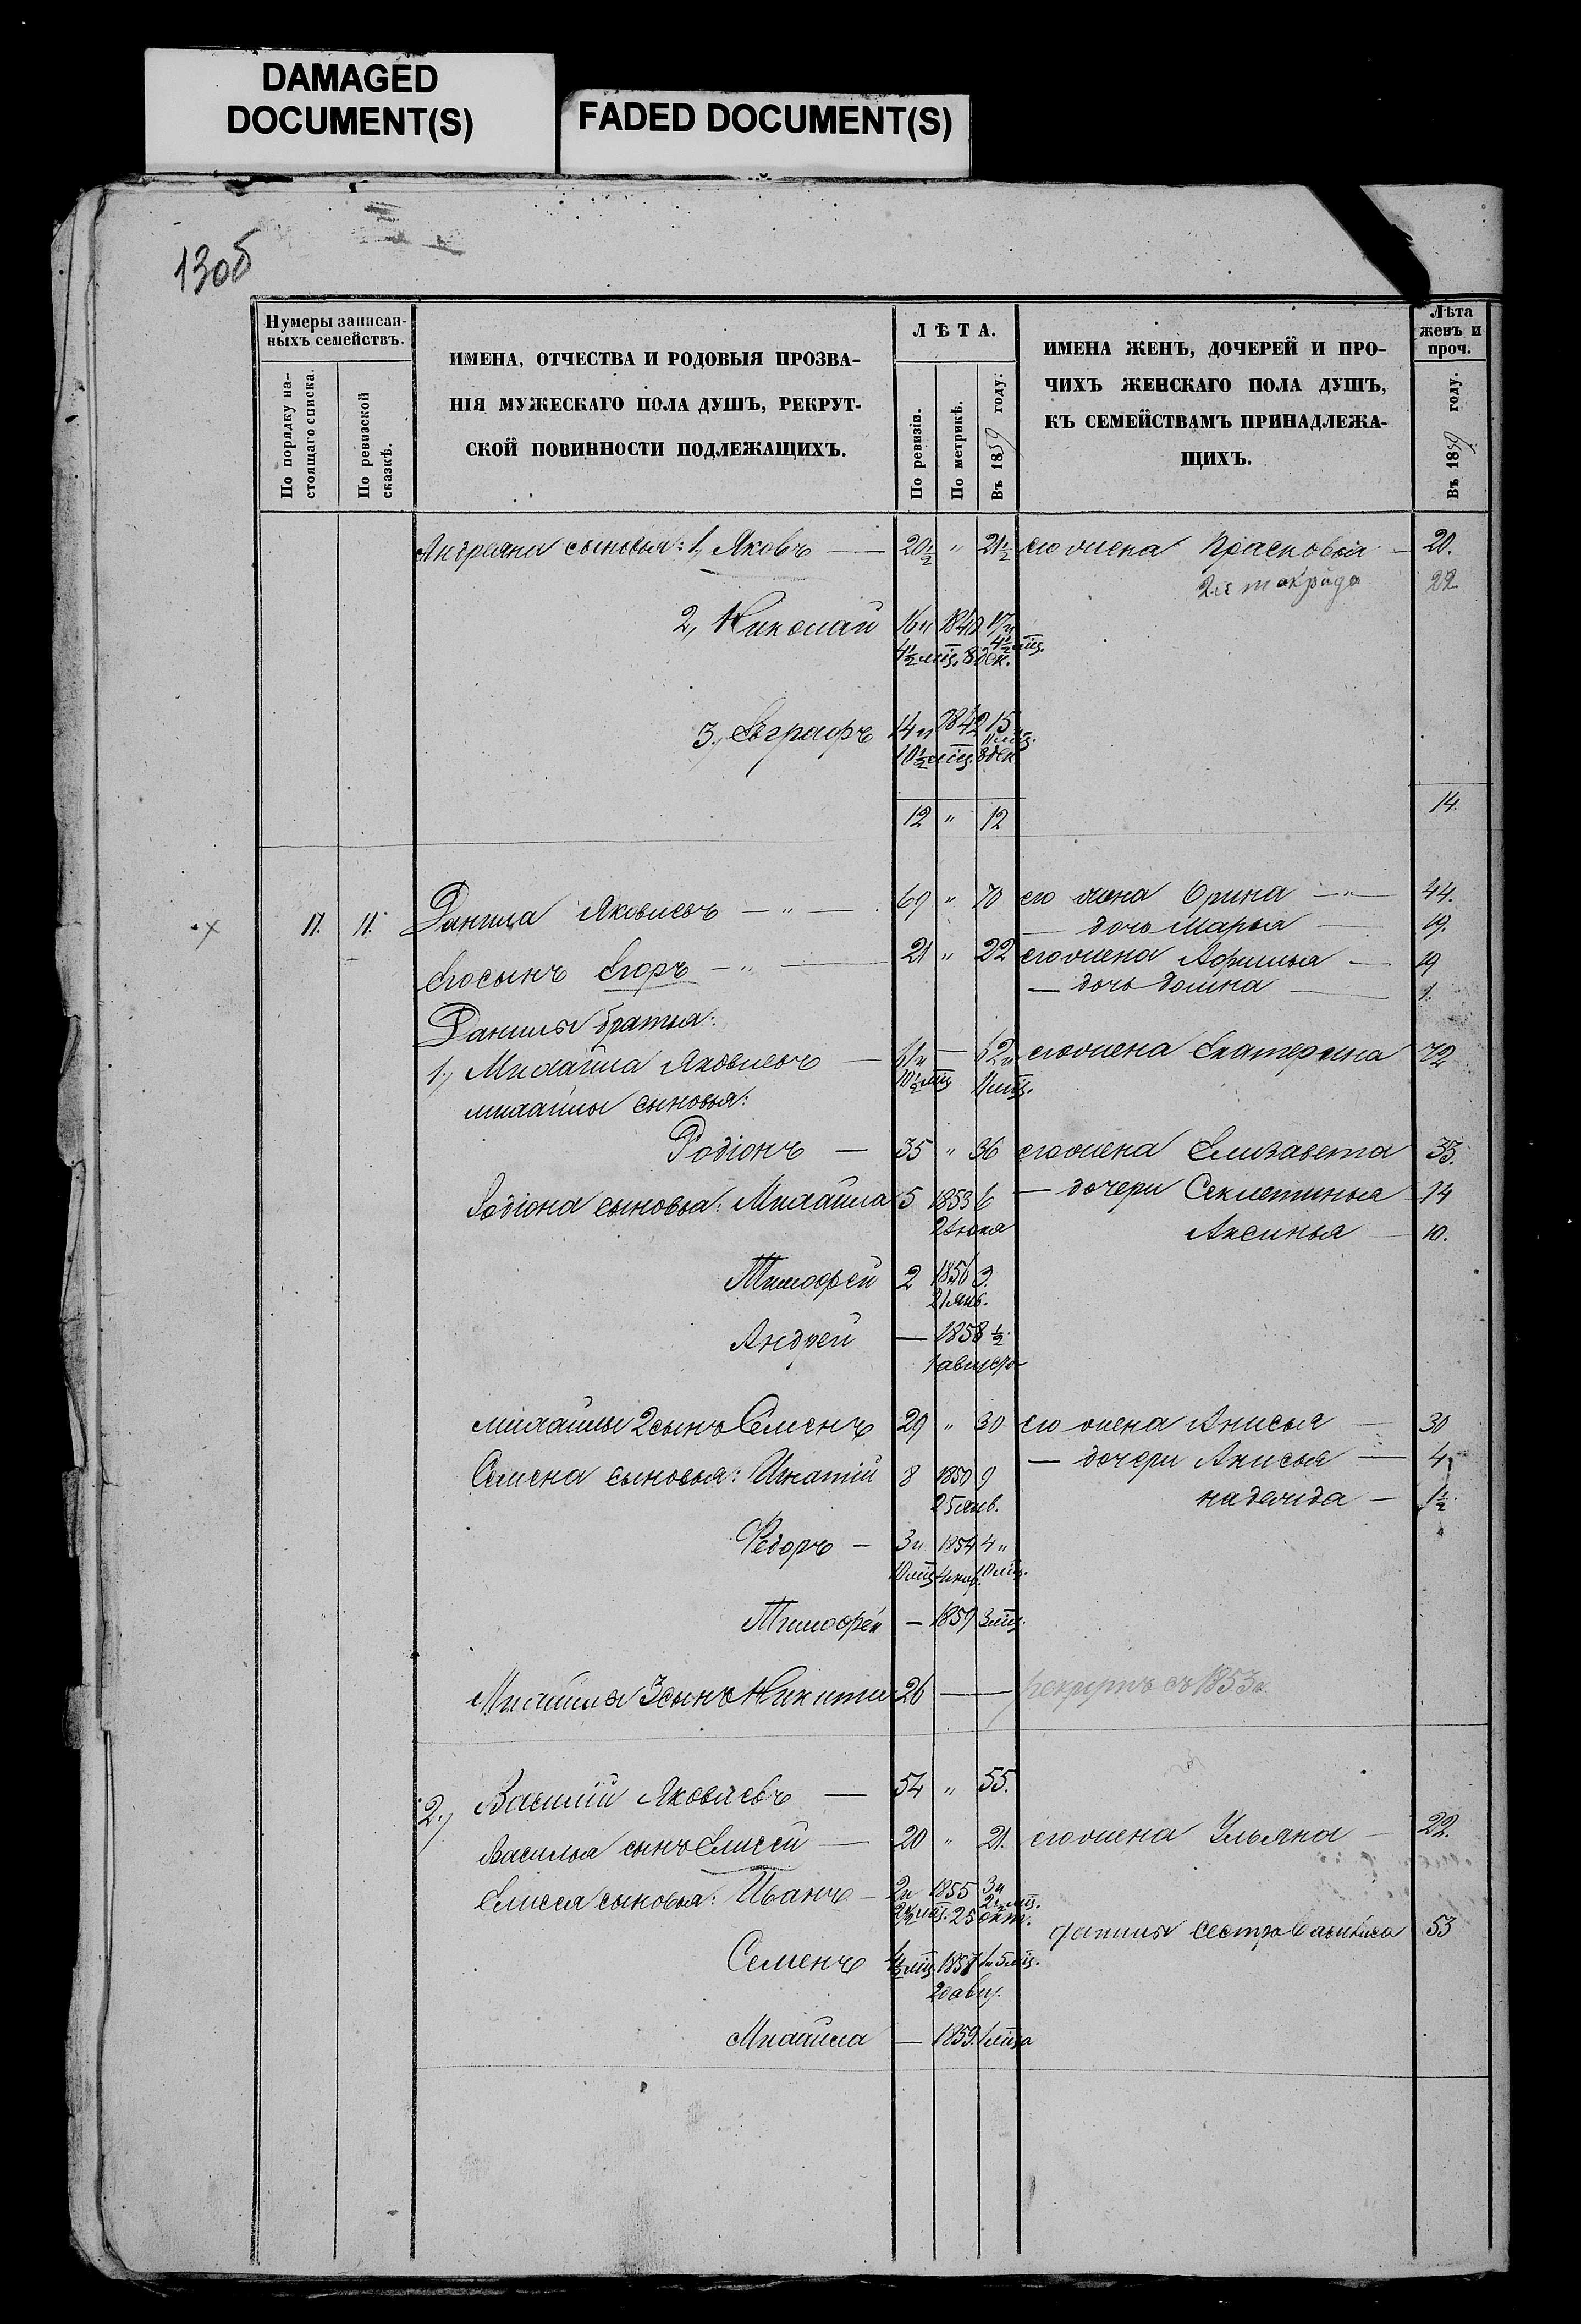 DAMAGED
DOCUMENT(S)
FADED DOCUMENT(S)
130б
Нумеры записан-
ныхъ семействъ.
По порядку на-
стоящаго списка.
По ревизской
сказкѣ.
ИМЕНА, ОТЧЕСТВА И РОДОВЫЯ ПРОЗВА-
НІЯ МУЖЕСКАГО ПОЛА ДУШЪ, РЕКРУТ-
СКОЙ ПОВИННОСТИ ПОДЛЕЖАЩИХЪ.
ЛѢТА.
По ревизіи.
По метрикѣ.
Въ 1859 году.
ИМЕНА ЖЕНЪ, ДОЧЕРЕЙ И ПРО-
ЧИХЪ ЖЕНСКАГО ПОЛА ДУШЪ,
КЪ СЕМЕЙСТВАМЪ ПРИНАДЛЕЖА-
ЩИХЪ.
Лѣта
женъ и
проч.
Въ 1859 году.
Андреяна сыновья: 1, Яковъ — 20½ " 21½ его жена Прасковья — 20.
2я макрида 22
2, Николай 16 и 1840 17 и
4½ мц. 8 дек. 4½ мц.
3, Евграфъ 14 и 1842 15
10½ мц. 8 дек. 11 мц.
12 " 12 14.
11. 11. Данила Яковлевъ — " — 69 " 70 его жена Орина — " — 44.
— дочь Марья — 19.
Его сынъ Егоръ — " — 21 " 22 его жена Афимья — 19
— дочь Домна — 1.
Данилы братья:
1, Михайла Яковлевъ — 61 и — 62 и его жена Екатерина 72
10½ мц 11 мц.
михайлы сыновья:
Родіонъ — 35 " 36 его жена Елизавета 35.
Родіона сыновья: Михайла 5 1853 6 — дочери Секлетинья 14
Аксинья — 10.
Тимофей 2 1856 3.
21 янв.
Андрей — 1858 ½
1 августа
михайлы 2 сынъ Семенъ 29 " 30 его жена Анисья — 30
Семена сыновья: Игнатій 8 1850 9 — дочери Анисья — 4
25 янв. надежда — 1½
Федоръ — 3 и 1854 4 "
10 мц. 10 мц.
Тимофей — 1859 3 мц.
Михайлы 3 сынъ Никита 26 — — рекрутъ съ 1853 г.
2, Василій Яковлевъ — 54 " 55.
Василья сынъ Елисей — 20 " 21. его жена Ульяна — 22.
Елисея сыновья: Иванъ — 2 и 1855 3 и
2½ мц. 25 окт. 2½ мц.
данилы сестра Василиса 53
Семенъ 1857 1 и 5 мц.
20 авг.
Михайла — 1859. 1 мца